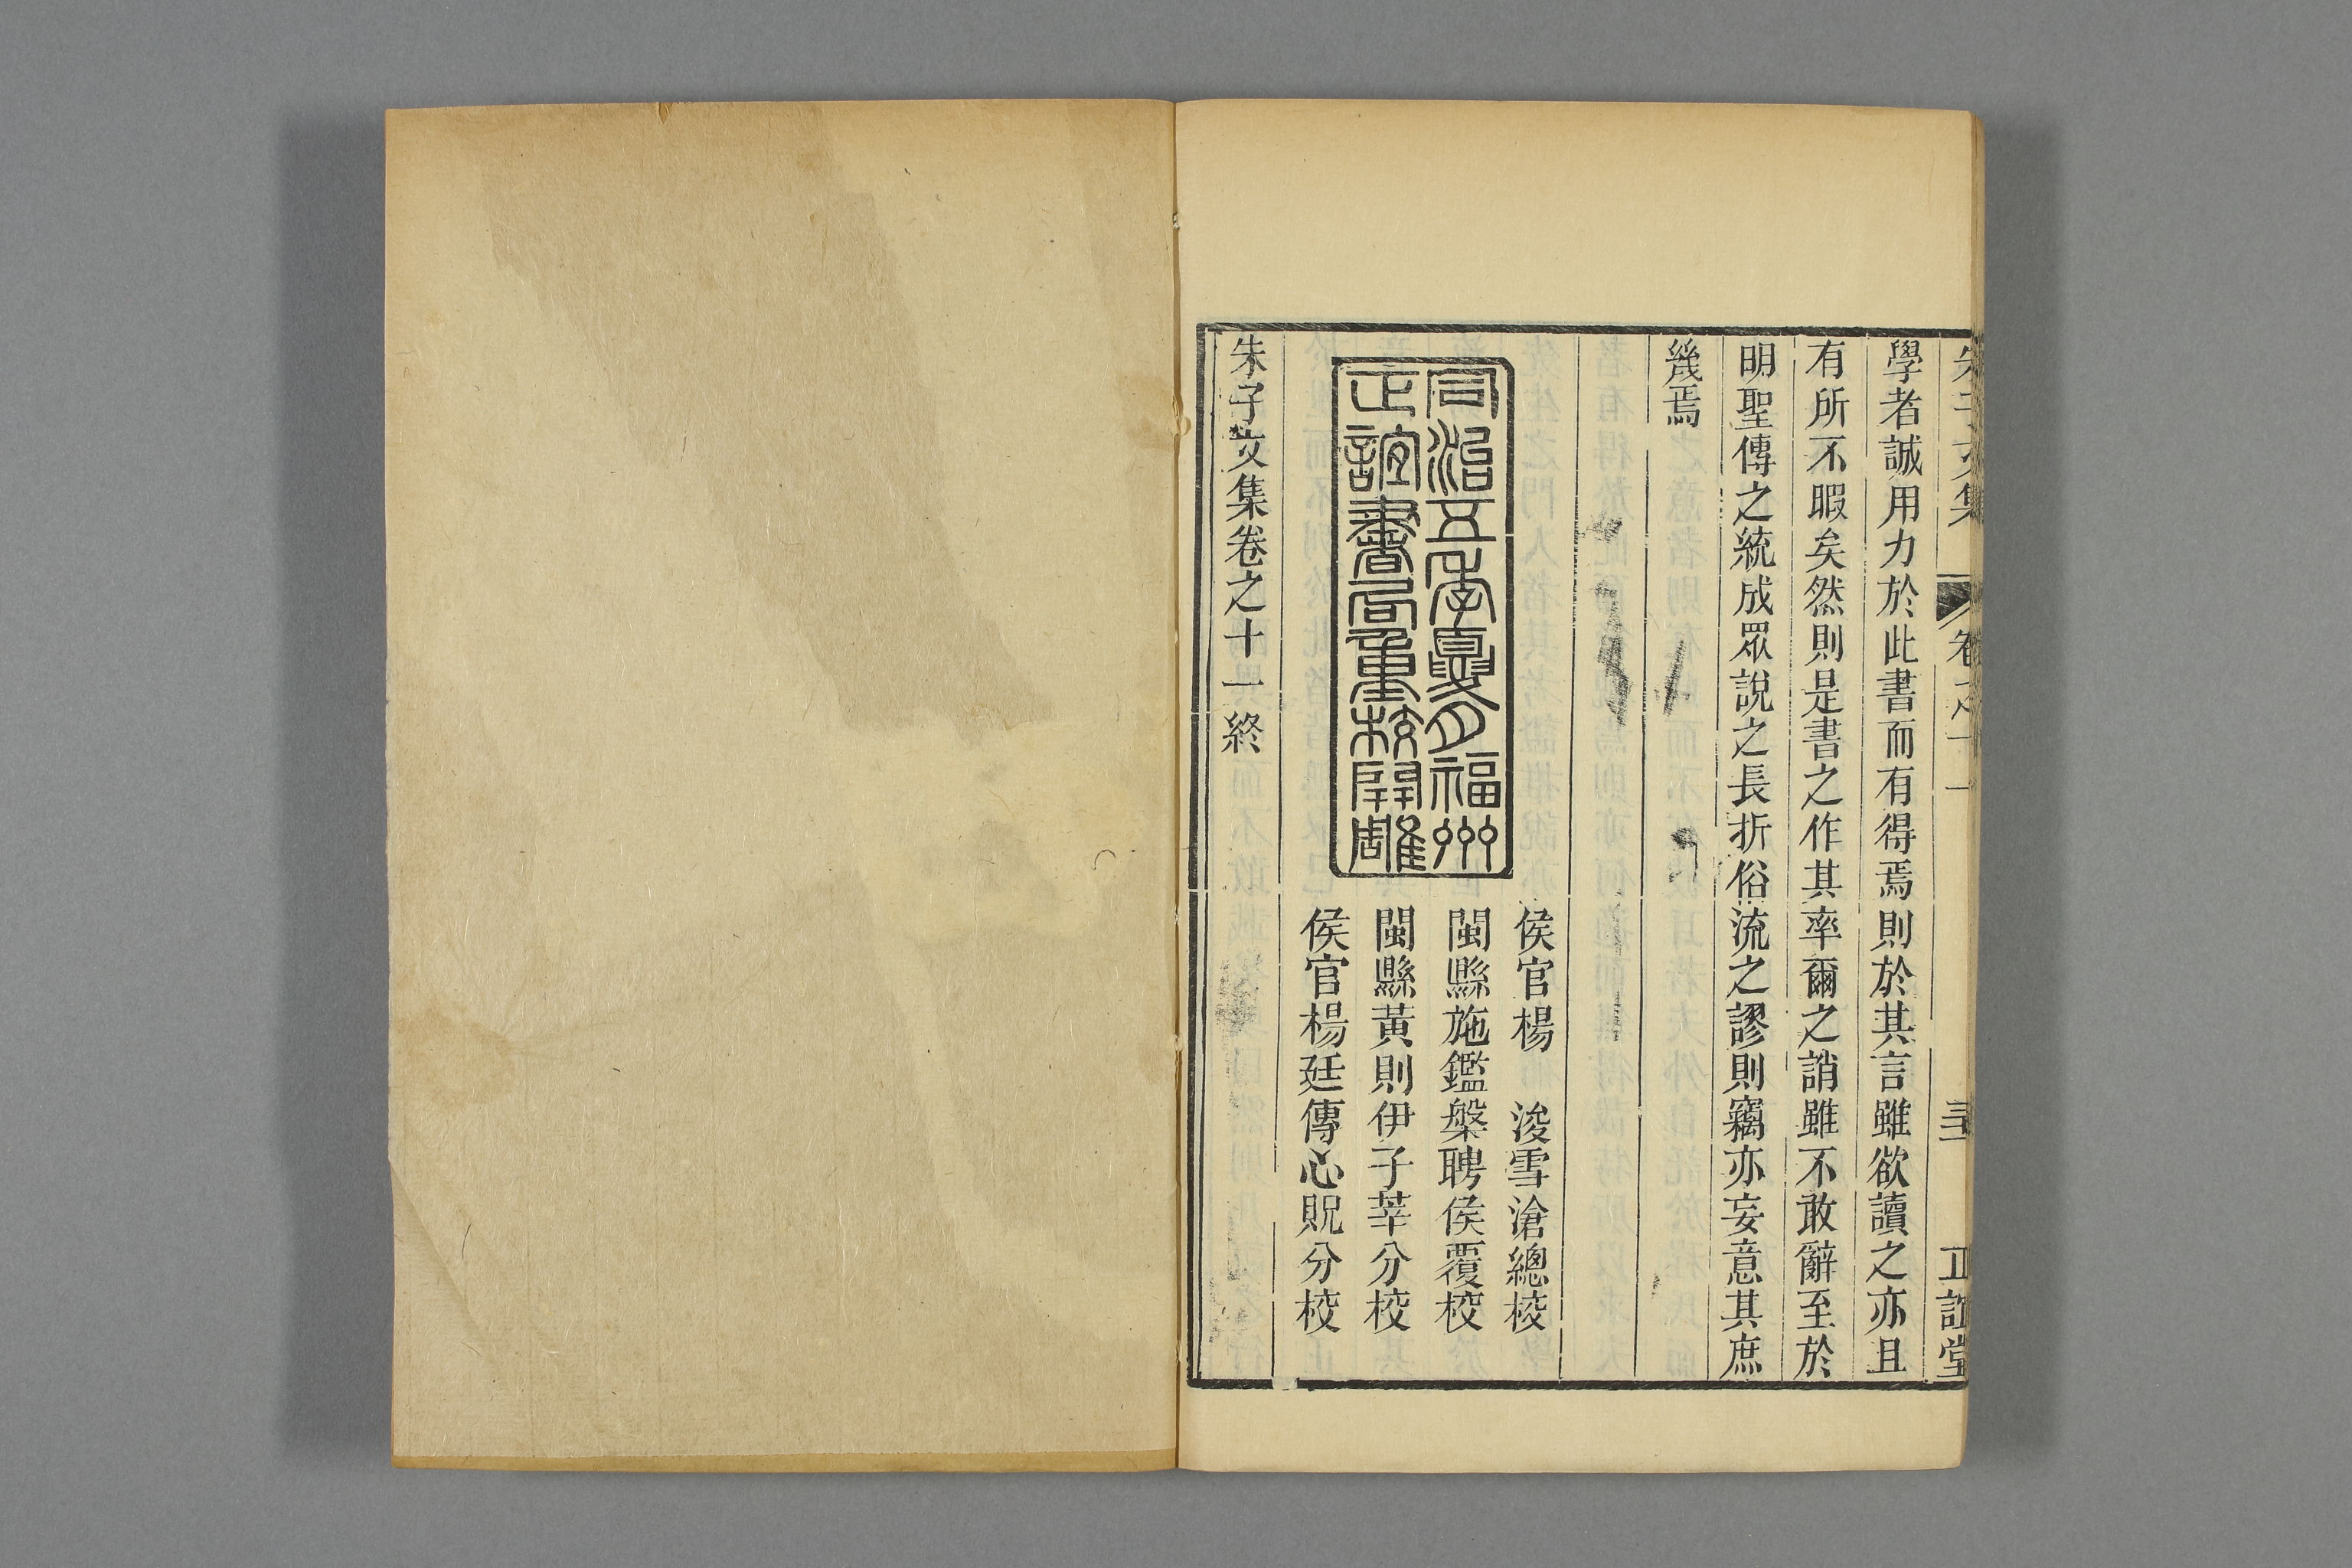 朱子文集 卷之十一 正誼堂
學者誠用力於此書而有得焉則於其言雖欲讀之亦且
有所不暇矣然則是書之作其率爾之誚雖不敢辭至於
明聖傳之統成眾說之長折俗流之謬則竊亦妄意其庶
幾焉
同治五年夏月福州
正誼書局重校開雕
侯官楊 浚雪滄總校
閩縣施鑑槃聘侯覆校
閩縣黃則伊子莘分校
侯官楊廷傳心貺分校
朱子文集卷之十一終